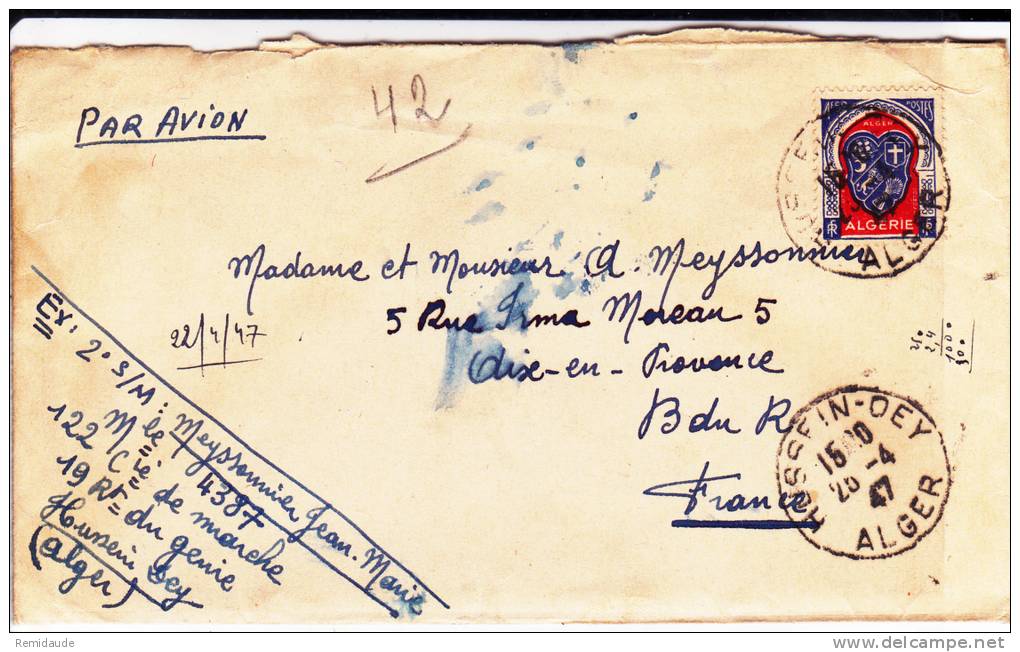 PAR AVION
42
AFR POSTES
ALGER
ALGÉRIE
ALGER
Madame et Monsieur A. Meyssonnier
5 Rue Irma Moreau 5
Aix-en-Provence
B du R
France
22/4/47
1000
300
HUSSEIN-DEY
15 00
23 -4
47
ALGER
Ex: 2° S/M: Meyssonnier Jean-Marie
Mle 4387
122 Cie de marche
19 Rt du genie
Hussein Dey
(Alger)
Remidaude
delcampe.net